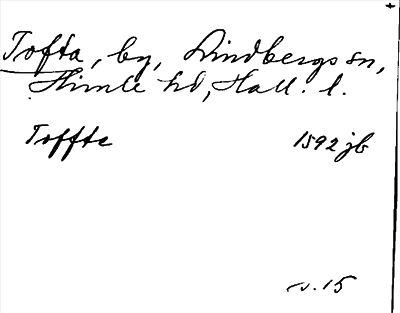 Tofta, by, Lindbergs sn,
Himle hd, Hall. l.
Toffte 1592 jb
s. 15